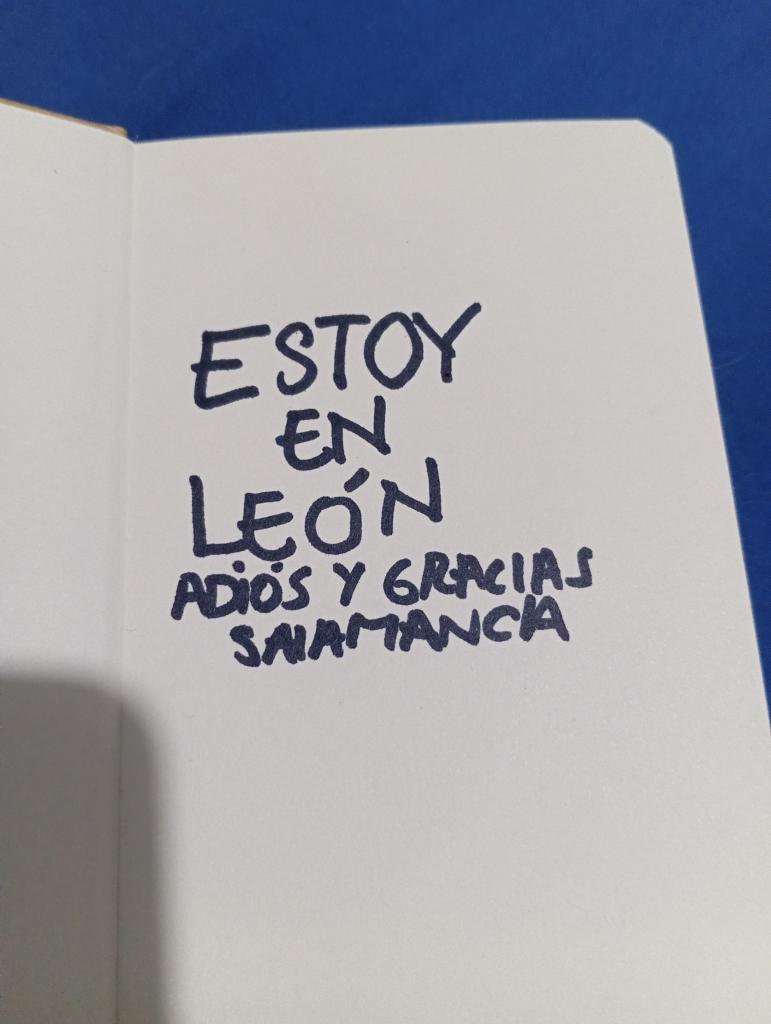 ESTOY
EN
LEÓN
ADIÓS Y GRACIAS
SALAMANCA